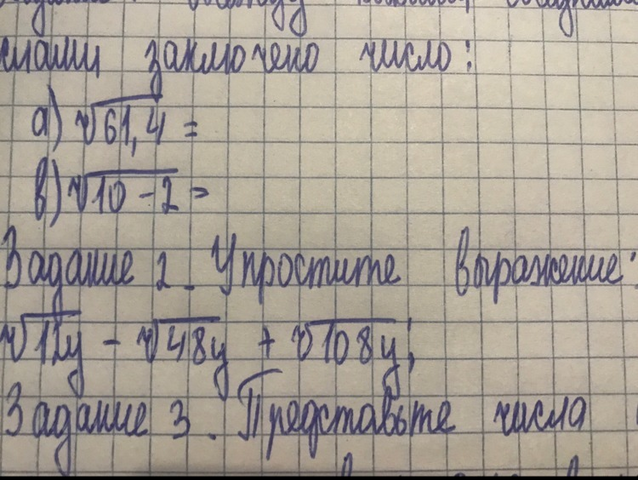 заключено число:
а) √61,4 =
в) √10-2 =
Задание 2. Упростите выражение:
√12y - √48y + √108y;
Задание 3. Представьте числа